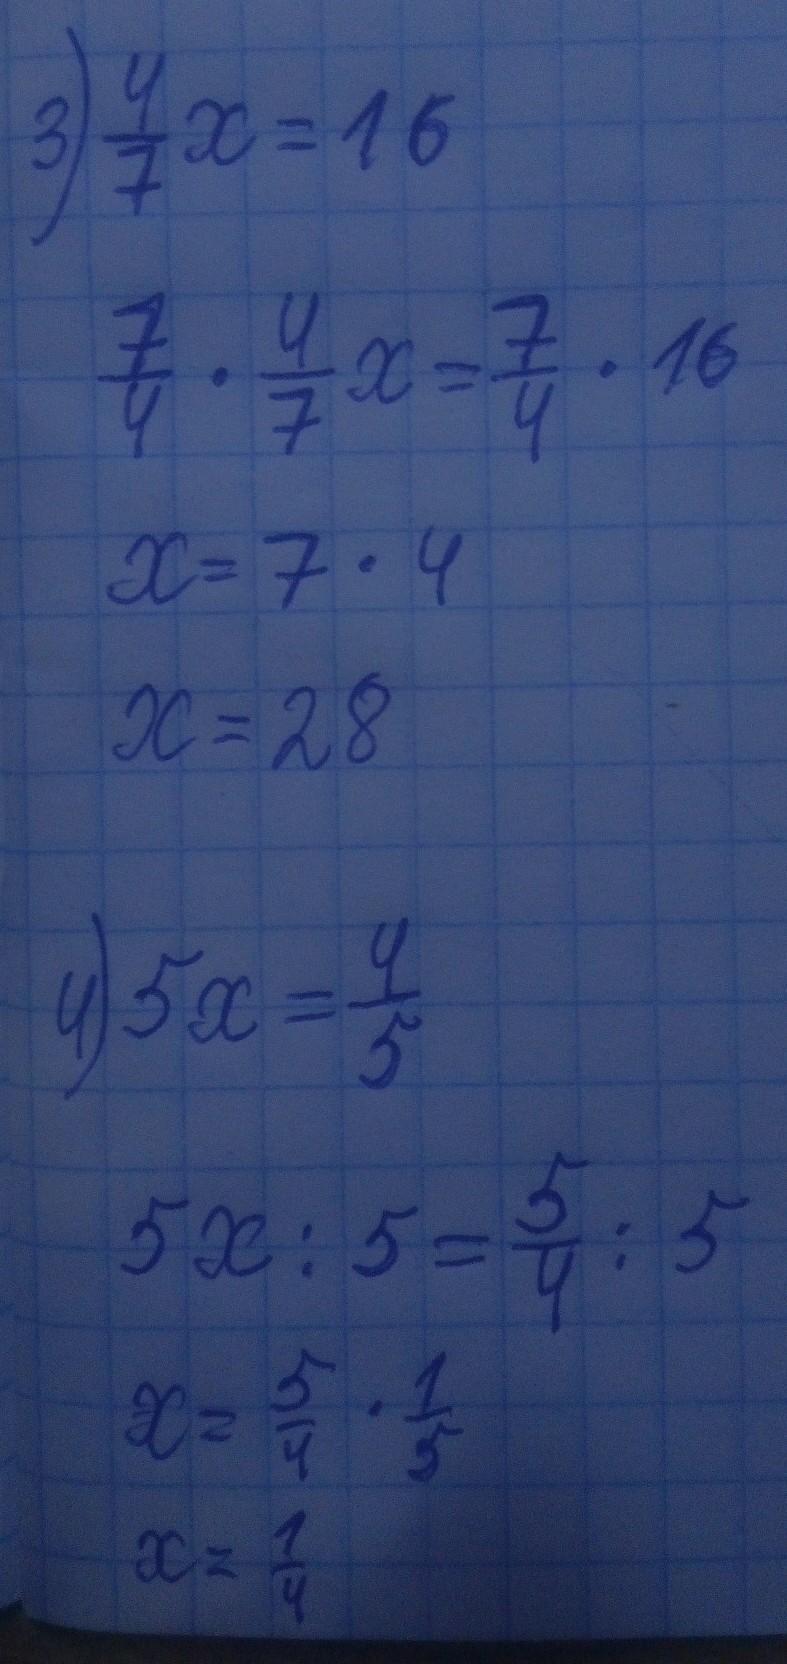 3) 4/7 x = 16
7/4 · 4/7 x = 7/4 · 16
x = 7 · 4
x = 28
4) 5x = 4/5
5x : 5 = 5/4 : 5
x = 5/4 · 1/5
x = 1/4